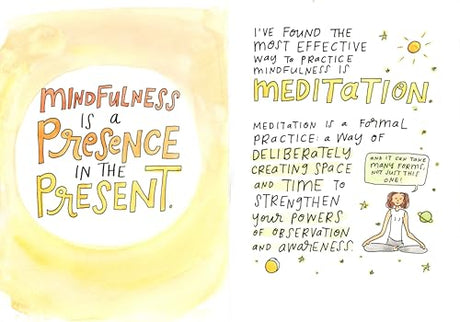 MINDFULNESS
IS A
PRESENCE
IN THE
PRESENT.
I'VE FOUND THE
MOST EFFECTIVE
WAY TO PRACTICE
MINDFULNESS IS
MEDITATION.
MEDITATION IS A FORMAL
PRACTICE: A WAY OF
DELIBERATELY
CREATING SPACE
AND TIME TO
STRENGTHEN
YOUR POWERS
OF OBSERVATION
AND AWARENESS.
AND IT CAN TAKE
MANY FORMS,
NOT JUST THIS
ONE!